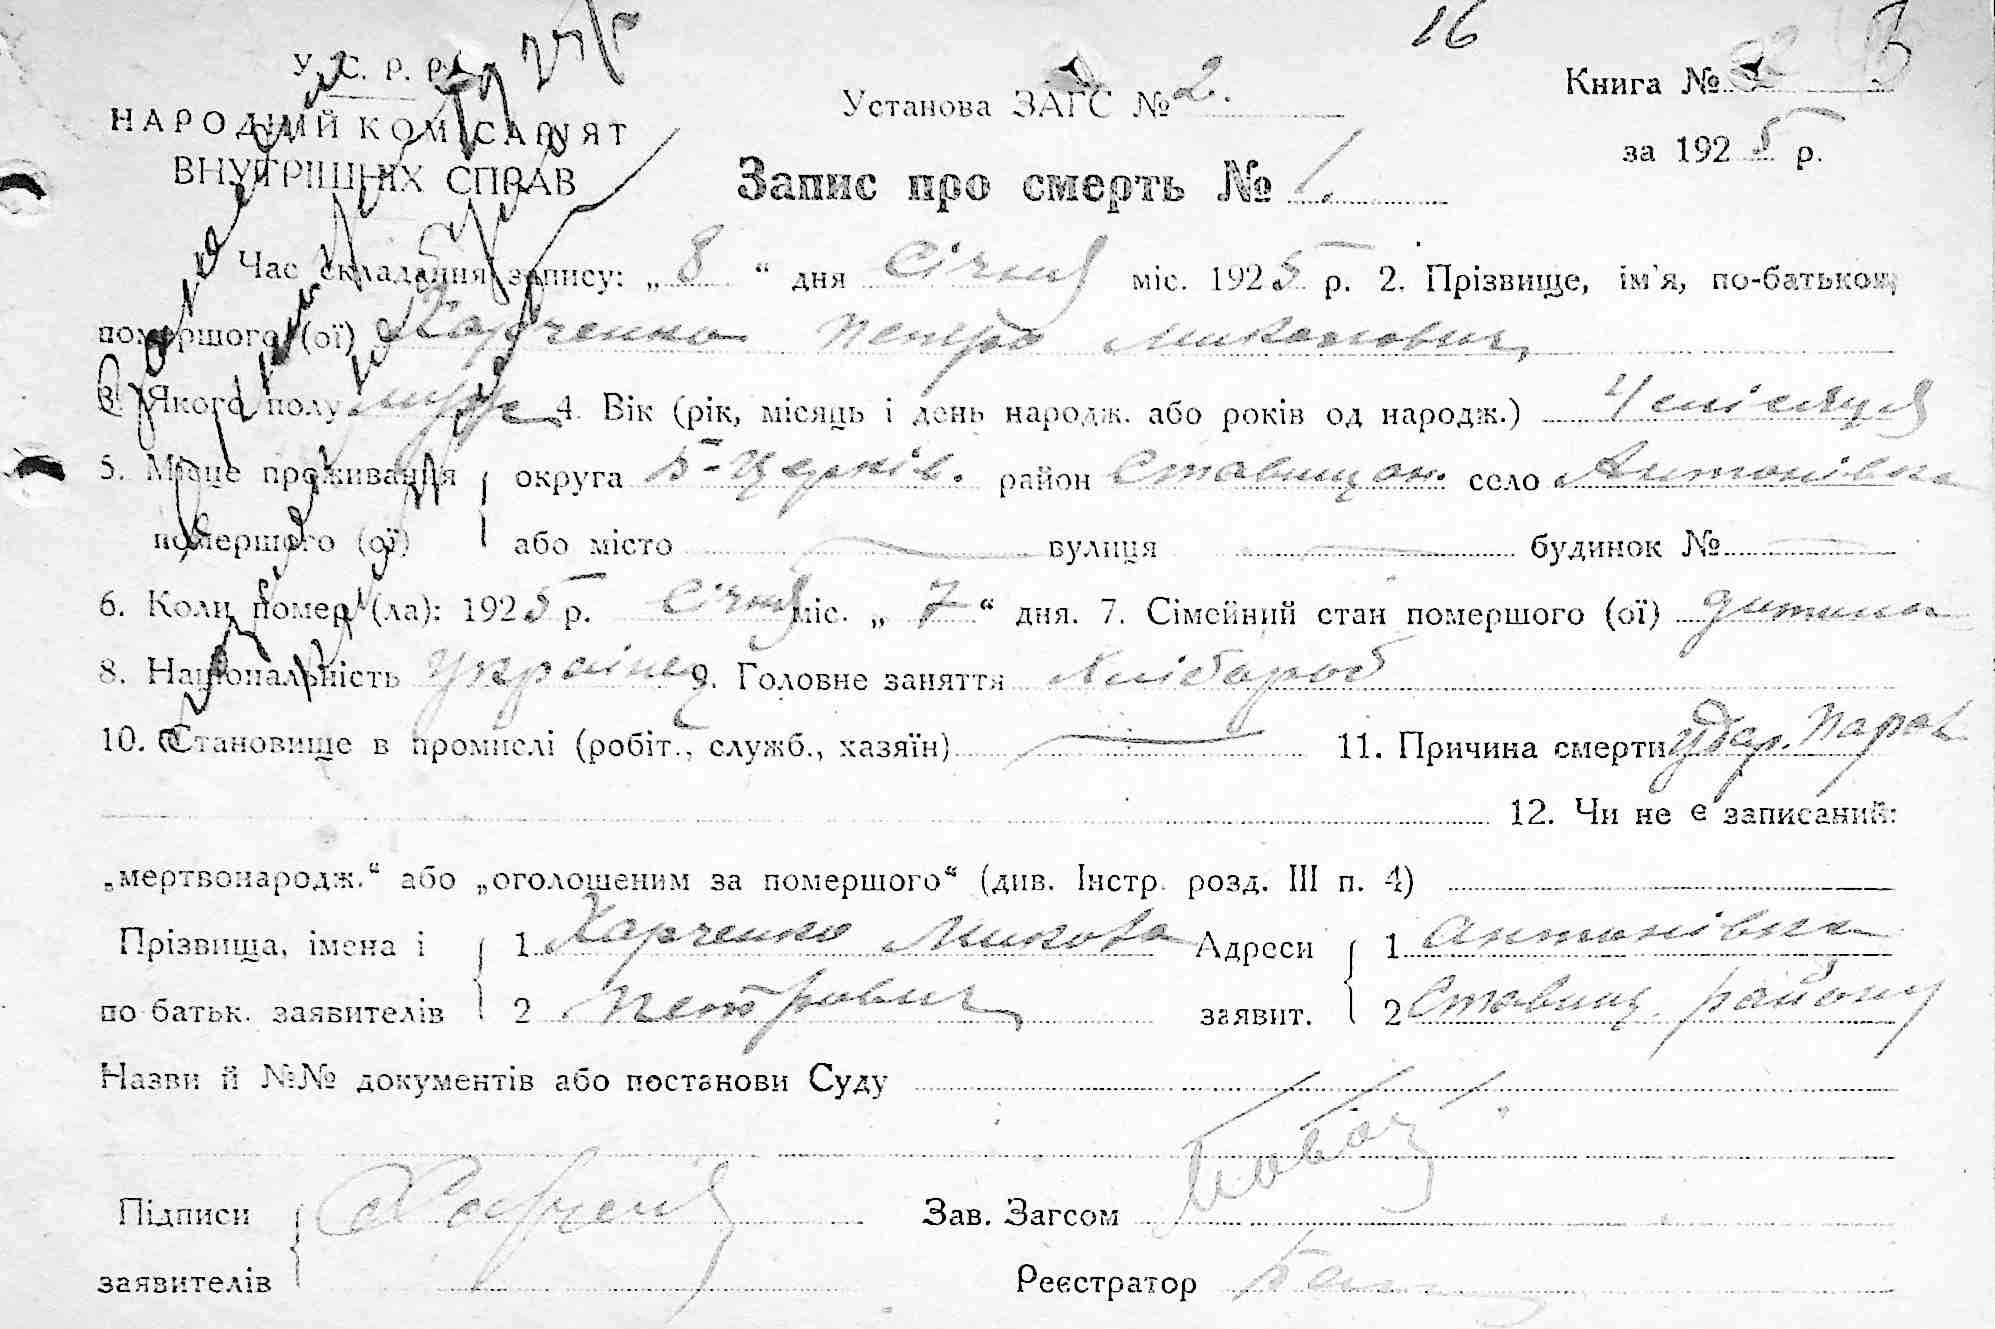 16
У. С. Р. Р.
НАРОДНІЙ КОМІСАРІЯТ
ВНУТРІШНІХ СПРАВ
Установа ЗАГС № 2.
Книга №
за 1925 р.
Запис про смерть № 1.
Час складання запису: „ 8 “ дня Січня міс. 1925 р. 2. Прізвище, ім'я, по-батькові
помершого (ої) Харченко Петро Миколович
3. Якого полу муж 4. Вік (рік, місяць і день народж. або років од народж.) 4 місяця
5. Місце проживання помершого (ої) { округа Б-Церків. район Ставищан. село Антонівка
або місто — вулиця — будинок № —
6. Коли помер (ла): 1925 р. Січня міс. „ 7 “ дня. 7. Сімейний стан помершого (ої) дитина
8. Національність українец 9. Головне заняття Хлібороб
10. Становище в промислі (робіт., служб., хазяїн) — 11. Причина смерти
12. Чи не є записаний:
„мертвонародж.“ або „оголошеним за помершого“ (див. Інстр. розд. III п. 4)
Прізвища, імена і { 1 Харченко Микола Адреси { 1 Антонівка
по батьк. заявителів 2 Петрович заявит. 2 Ставищ. району
Назви й №№ документів або постанови Суду
Підписи Харченко Зав. Загсом
заявителів Реєстратор